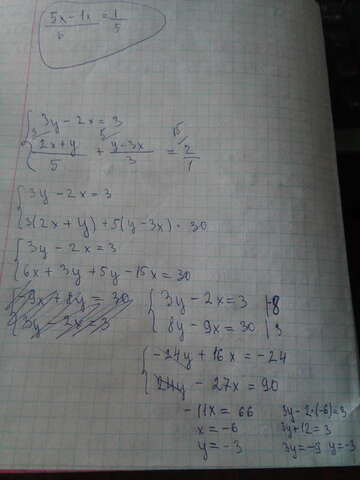 5x-1x/6 = 1/5
3y - 2x = 3
3 5 15
2x+y/5 + y-3x/3 = 2/1
3y - 2x = 3
3(2x + y) + 5(y-3x) = 30
3y - 2x = 3
6x + 3y + 5y - 15x = 30
-9x + 8y = 30
3y - 2x = 3
3y - 2x = 3 |-8
8y - 9x = 30 | 3
-24y + 16x = -24
24y - 27x = 90
-11x = 66
x = -6
y = -3
3y - 2·(-6) = 3
3y + 12 = 3
3y = -9 y = -3